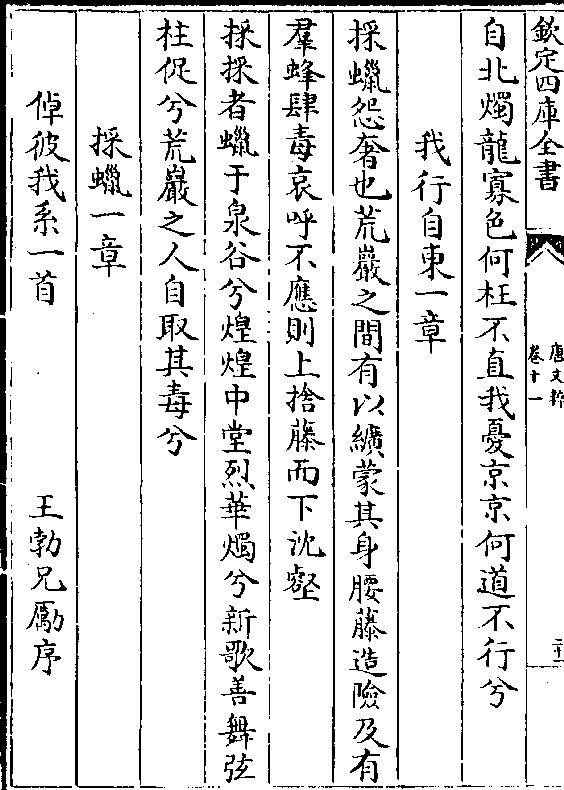 欽定四庫全書
唐文粹
卷十一
二十一
自北燭龍寡色何枉不直我憂京京何道不行兮
我行自東一章
採蠟怨奢也荒巖之間有以纊蒙其身腰藤造險及有
羣蜂肆毒哀呼不應則上捨藤而下沈壑
採採者蠟于泉谷兮煌煌中堂烈華燭兮新歌善舞弦
柱促兮荒巖之人自取其毒兮
採蠟一章
倬彼我系一首 王勃兄勵序